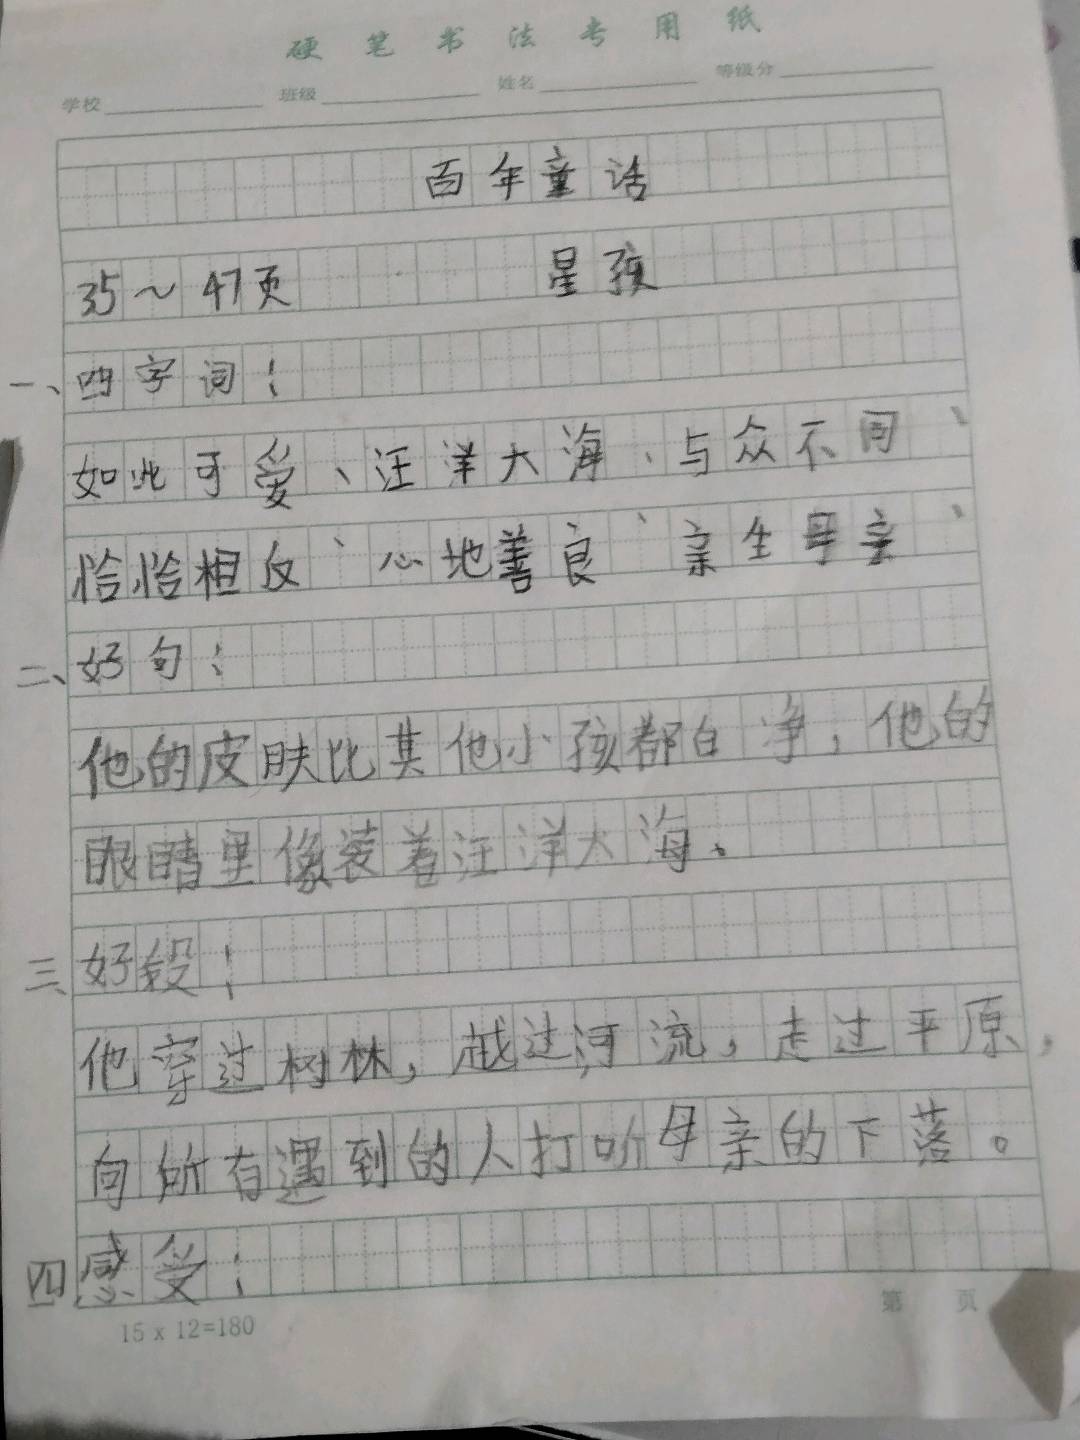 硬笔书法专用纸
学校 班级 姓名 等级分
百年童话
35～47页 星孩
一、四字词：
如此可爱、汪洋大海、与众不同、
恰恰相反、心地善良、亲生母亲、
二、好句：
他的皮肤比其他小孩都白净，他的
眼睛里像装着汪洋大海、
三、好段：
他穿过树林，越过河流，走过平原，
向所有遇到的人打听母亲的下落。
四感受：
15 x 12=180
第 页